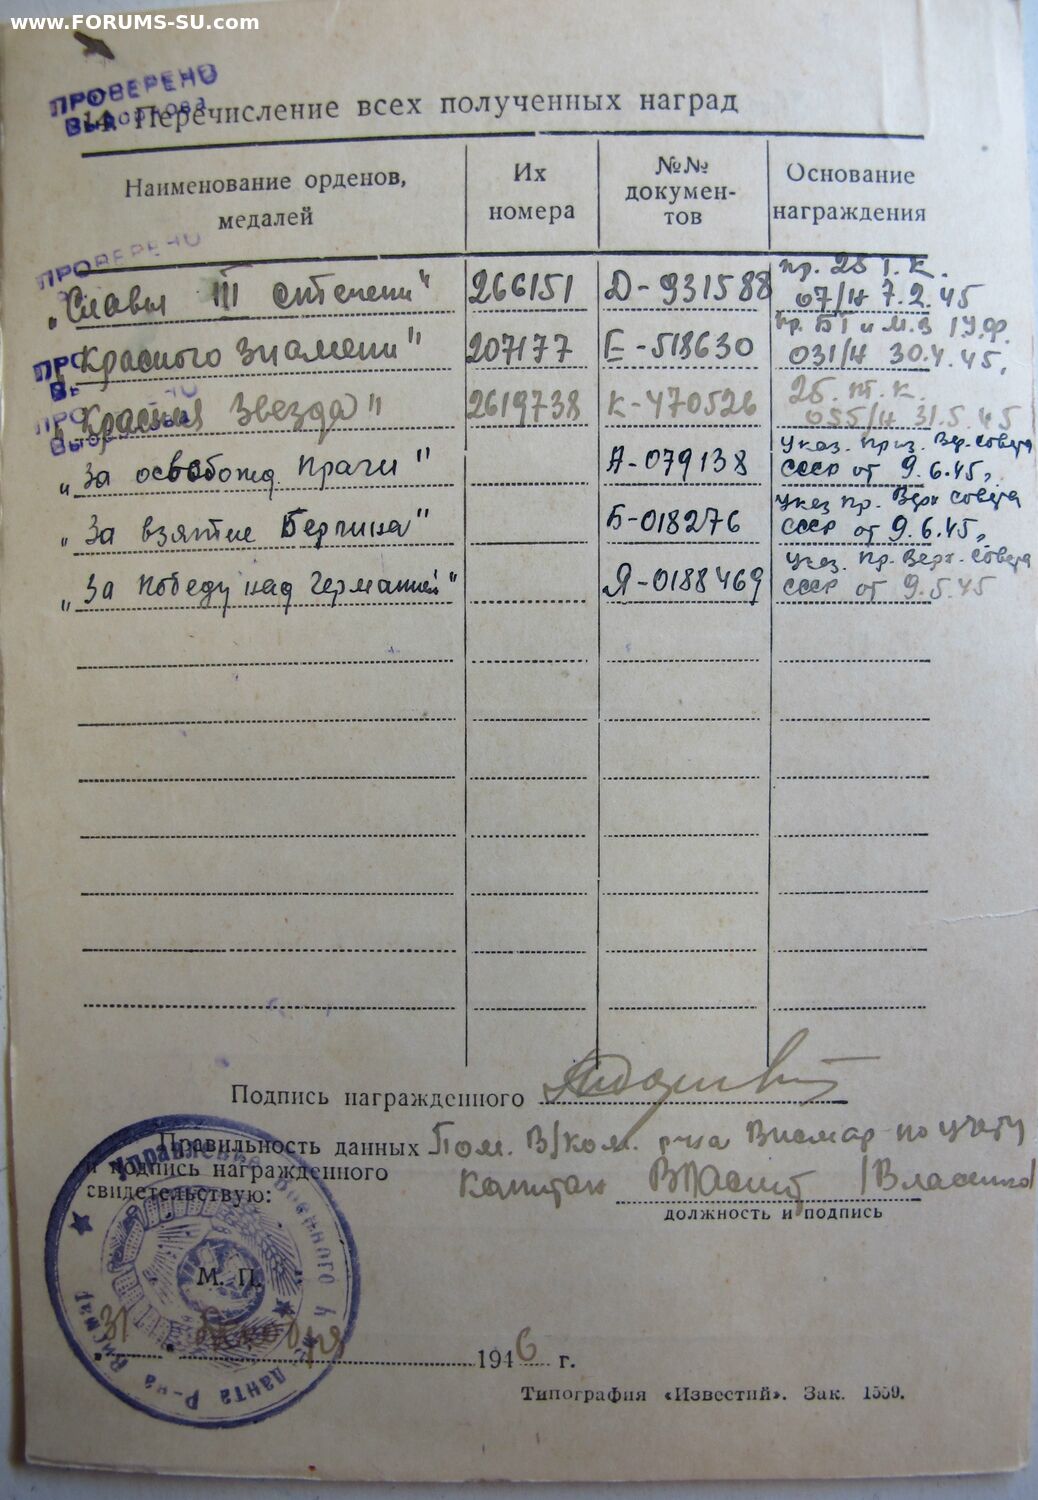 www.FORUMS-SU.com
ПРОВЕРЕНО
14. Перечисление всех полученных наград
Наименование орденов, медалей
Их номера
№№ документов
Основание награждения
ПРОВЕРЕНО
„Славы III степени" 266151 Д-931588 пр. 25 т.к. 07/н 7.2.45
„Красного Знамени" 207177 Е-518630 пр. БТ и М.В 1 У.Ф. 031/н 30.4.45,
„Красная Звезда" 2619738 К-470526 25. т.к. 055/н 31.5.45
„За освобожд. Праги" А-079138 Указ. През. Вер. Совета СССР от 9.6.45,
„За взятие Берлина" Б-018276 Указ Пр. Верх Совета СССР от 9.6.45,
„За Победу над Германией" Я-0188469 Указ. Пр. Верх. Совета СССР от 9.5.45
Подпись награжденного
Правильность данных Пом. В/ком. р-на Висмар по учету
и подпись награжденного Капитан /Власенко/
свидетельствую:
должность и подпись
М. П.
Управление Военного Коменданта Р-на Висмар
31 1946 г.
Типография «Известий». Зак. 1559.